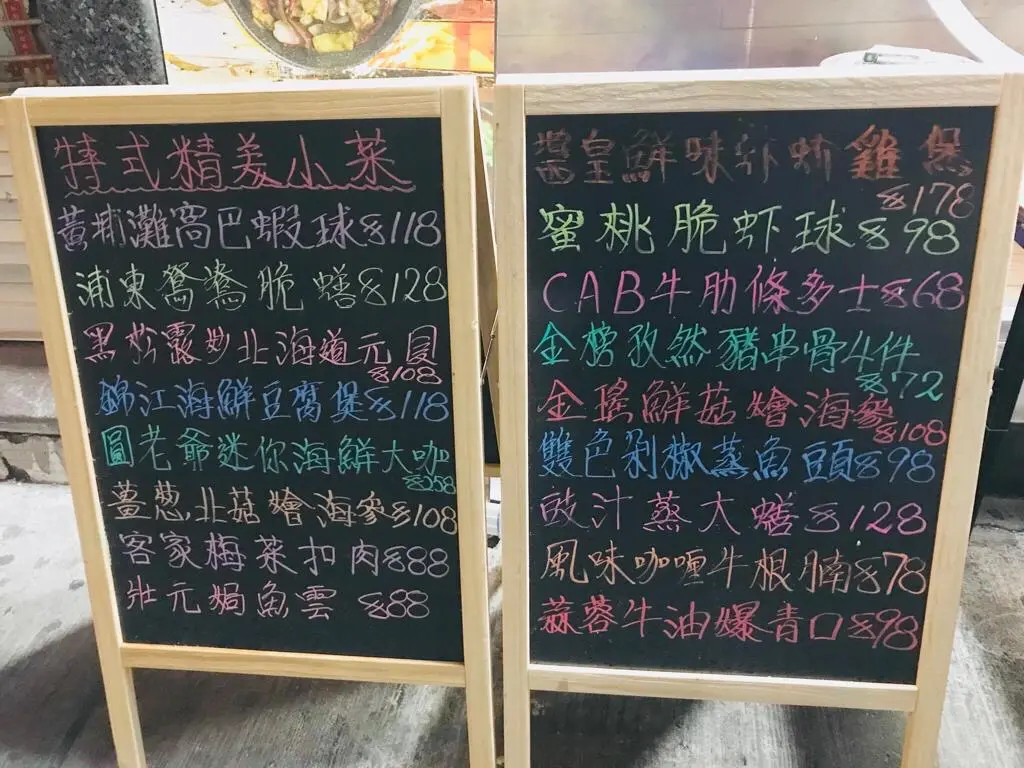 特式精美小菜
黃埔灘窩巴蝦球$118
浦東鴛鴦脆鱔$128
黑松露炒北海道元貝
$108
錦江海鮮豆腐煲$118
圓老爺迷你海鮮大咖
薑蔥北菇燴海參$108
客家梅菜扣肉$88
壯元焗魚雲 $88
醬皇鮮味虾蚧雞煲
$178
蜜桃脆虾球$98
CAB牛肋條多士$68
金榜孜然豬串骨4件
$72
金瑤鮮菇燴海參
$108
雙色剁椒蒸魚頭$98
豉汁蒸大鱔$128
風味咖喱牛根腩$78
蒜蓉牛油爆青口$98